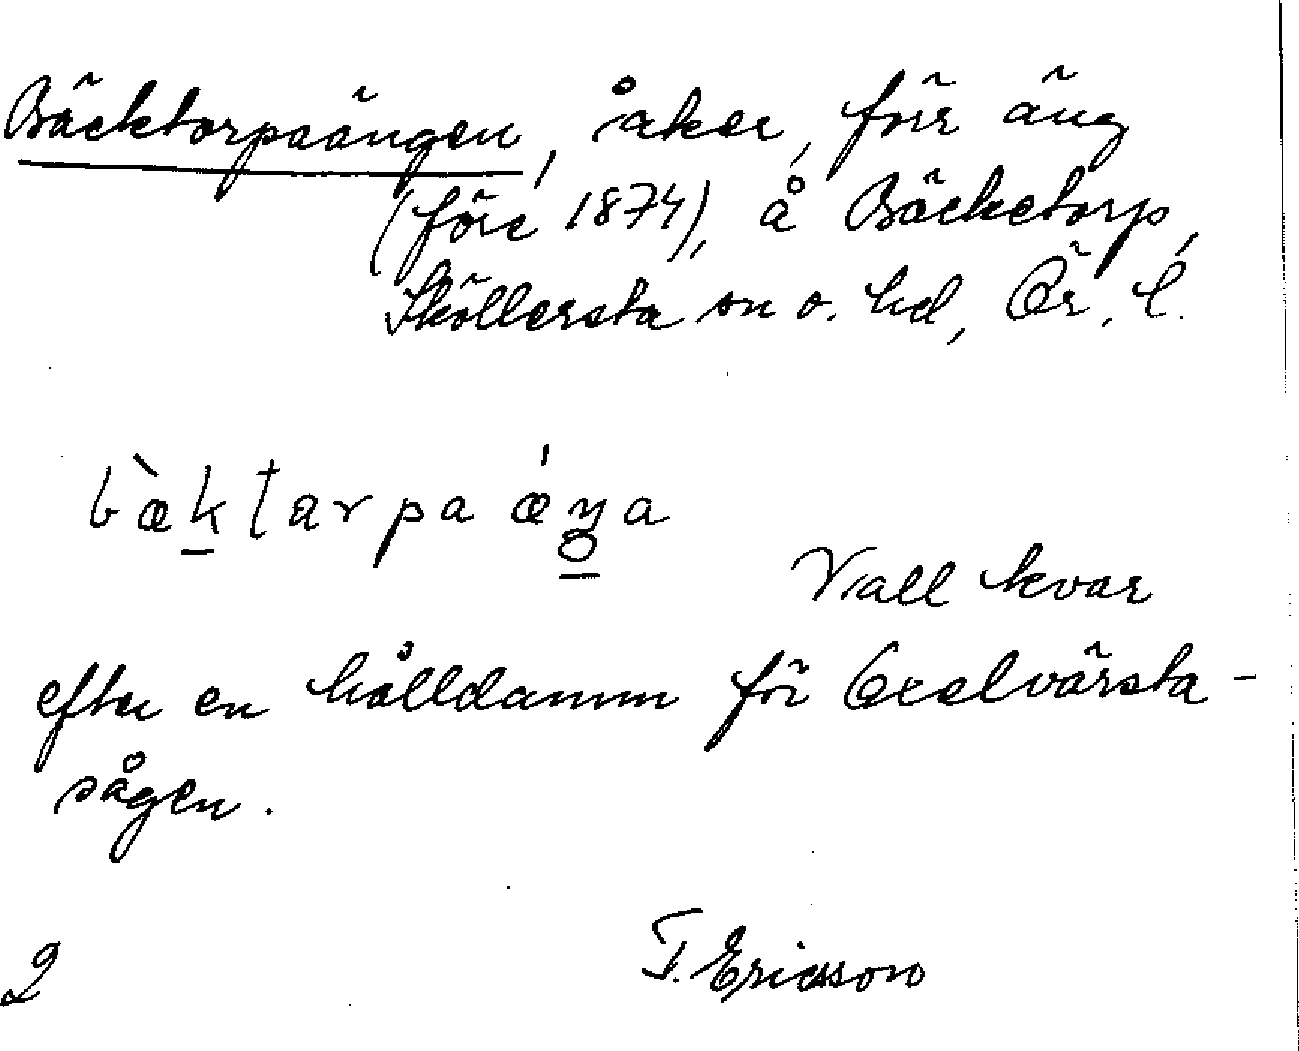 Bäcktorpaängen, åker, förr äng
(före 1874), å Bäcketorp,
Sköllersta sn o. hd, Ör. l.
bæ̀ktarpa ǽŋa
Vall kvar
efter en hålldamm för Exelvärsta-
sågen.
2
T. Ericsson